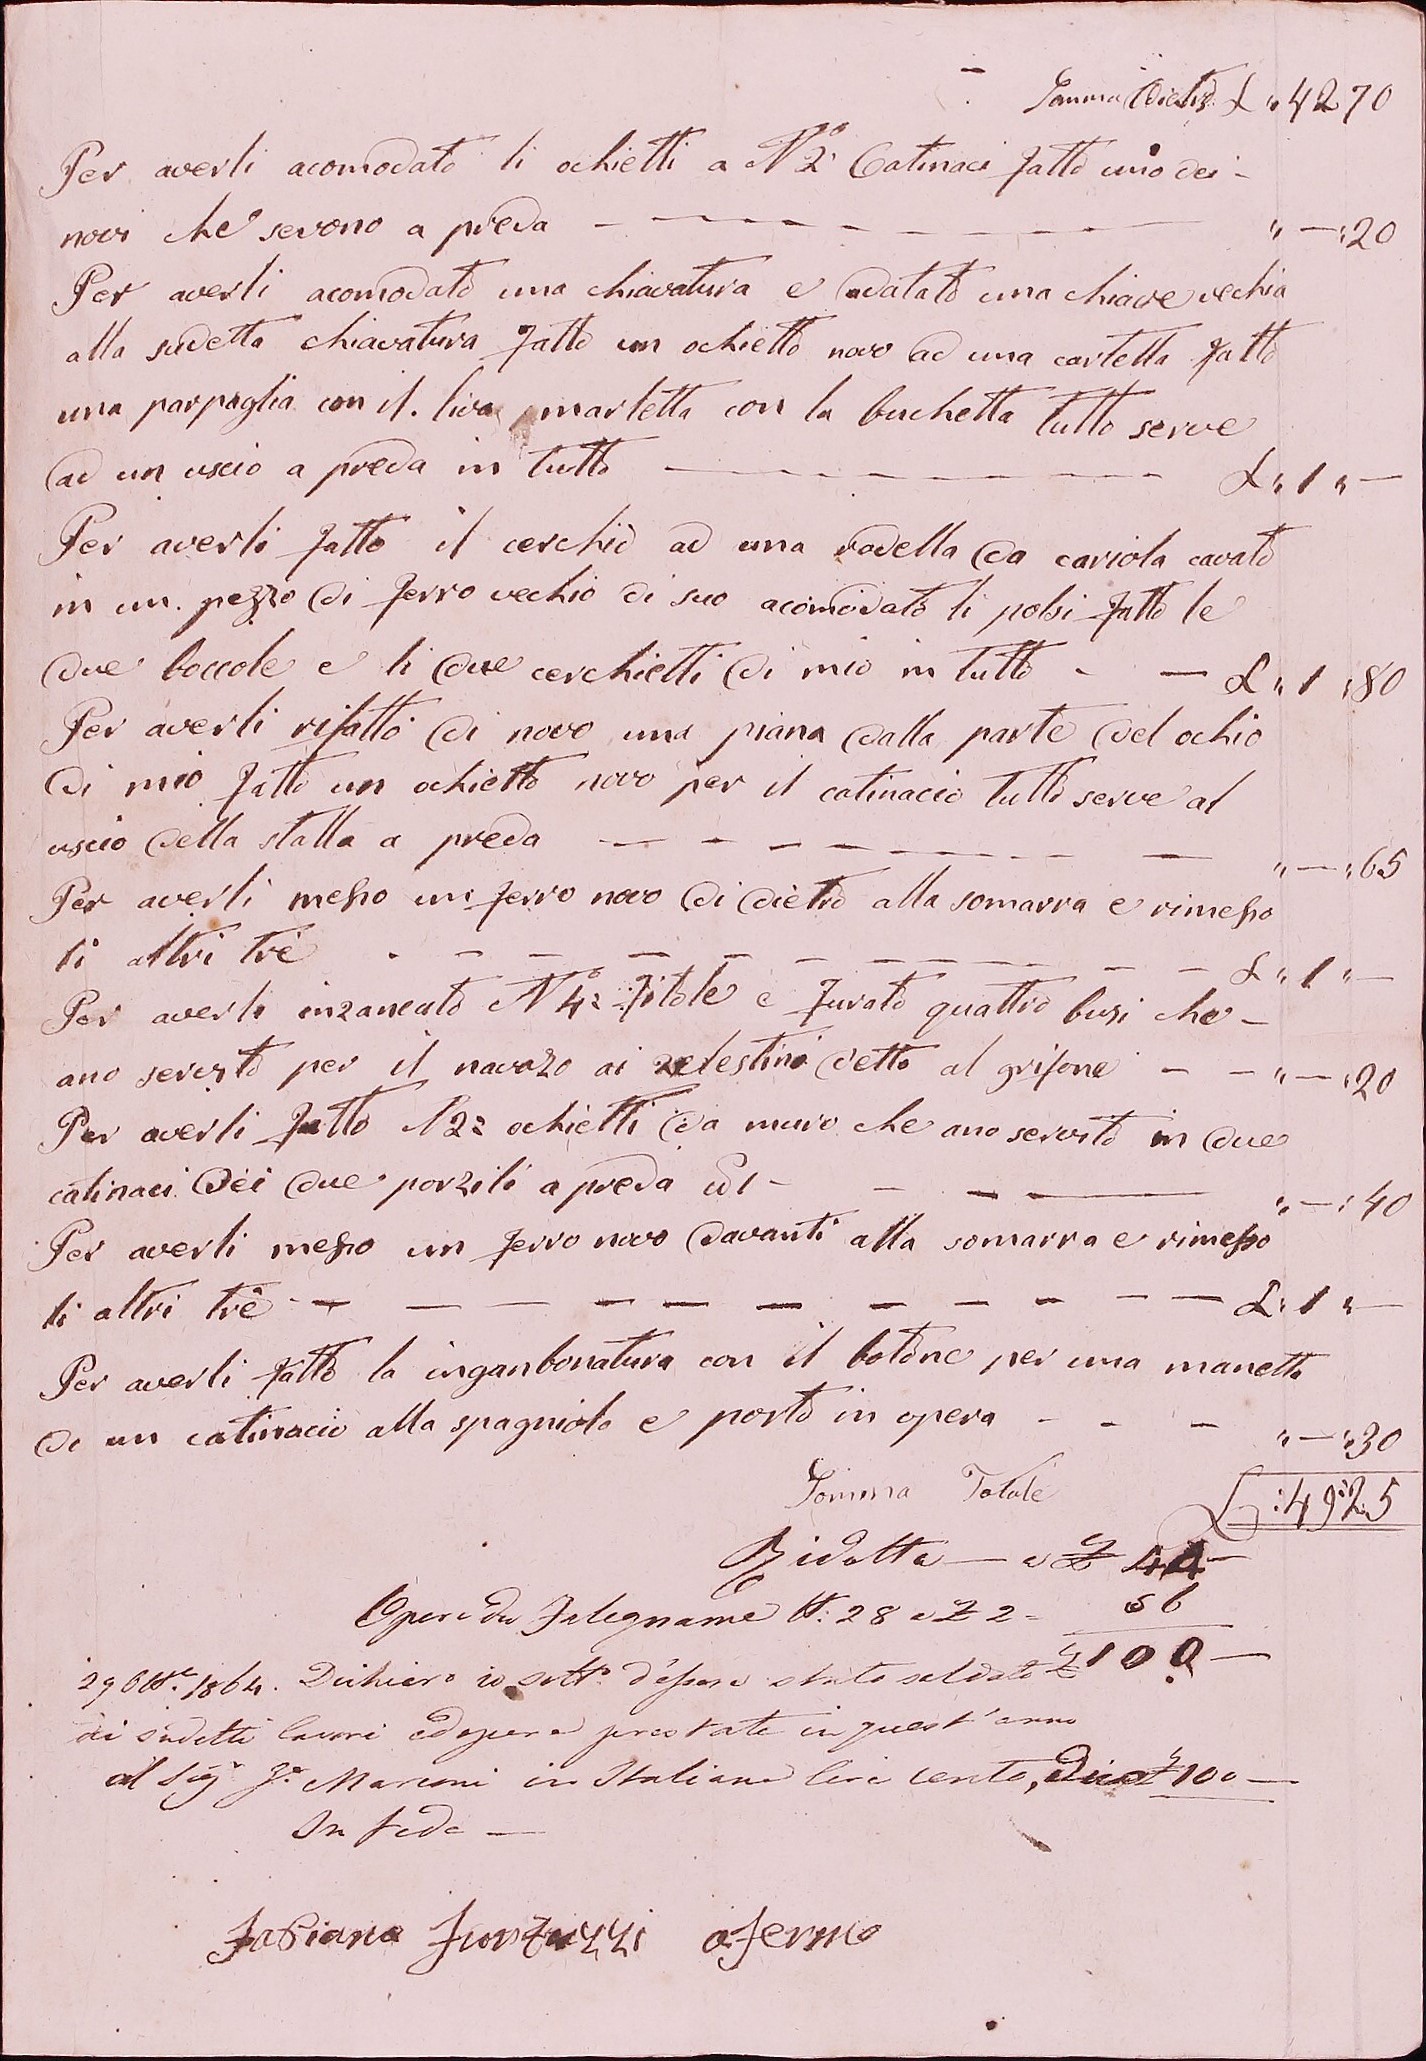 Somma Dietro £ „ 42 70
Per averli acomodato li ochietti a N° 2: Catinaci fatto uno dei -
novi che servono a preda — „ — : 20
Per averli acomodato una chiavatura e adatato una chiave vechia
alla sudetta chiavatura fatto un ochietto novo ad una cartella fatto
una parpaglia con il. liva marletta con la buchetta tutto serve
ad un uscio a preda in tutto — £ „ 1 „ —
Per averli fatto il cerchio ad una rodella da cariola cavato
in un. pezzo di ferro vechio di suo acomodato li polsi fatto le
due boccole e li due cerchietti di mio in tutto - — £ „ 1 : 80
Per averli rifatto di novo una piana dalla parte del ochio
di mio fatto un ochietto novo per il catinacio tutto serve al
uscio della stalla a preda — „ — : 65
Per averli messo un ferro novo di dietro alla somarra e rimesso
li altri trè — £ „ 1 „ —
Per averli inzancato N° 4: fitole e furato quattro busi che -
ano servito per il navazo ai zelestini detto al grifone - - „ — : 20
Per averli fatto N 2: ochietti da muro che ano servito in due
catinaci Dei due porzili a preda - — „ — : 40
Per averli messo un ferro novo davanti alla somarra e rimesso
li altri trè — £ „ 1 „ —
Per averli fatto la inganbonatura con il botone per una manetta
di un catinacio alla spagniola e porto in opera - - - „ — : 30
Somma Totale £ : 49 : 25
Ridotta — a £ 44 —
Opere da Falegname N: 28 a £ 2 - 56
£ 100 —
29 Ott.e 1864. Dichiaro io Sott.o d'essere stato saldato
dei sudetti lavori ed opere prestate in quest'anno
al Sig.r Marconi in Italiane lire cento, Dico £ 100 —
In fede —
Fabiano afermo